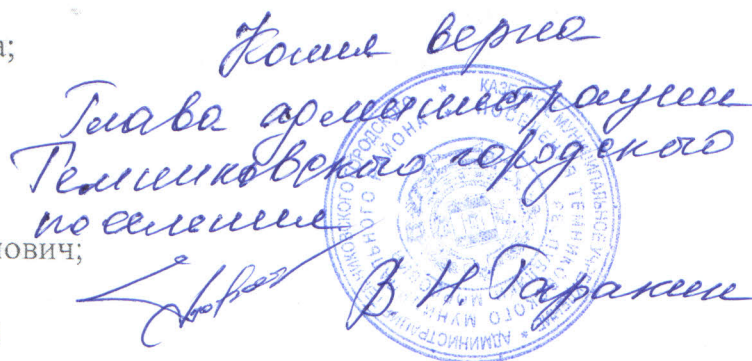 а;
Копия верна
Глава администрации
Темниковского городского
поселения
нович;
В Н Таракин